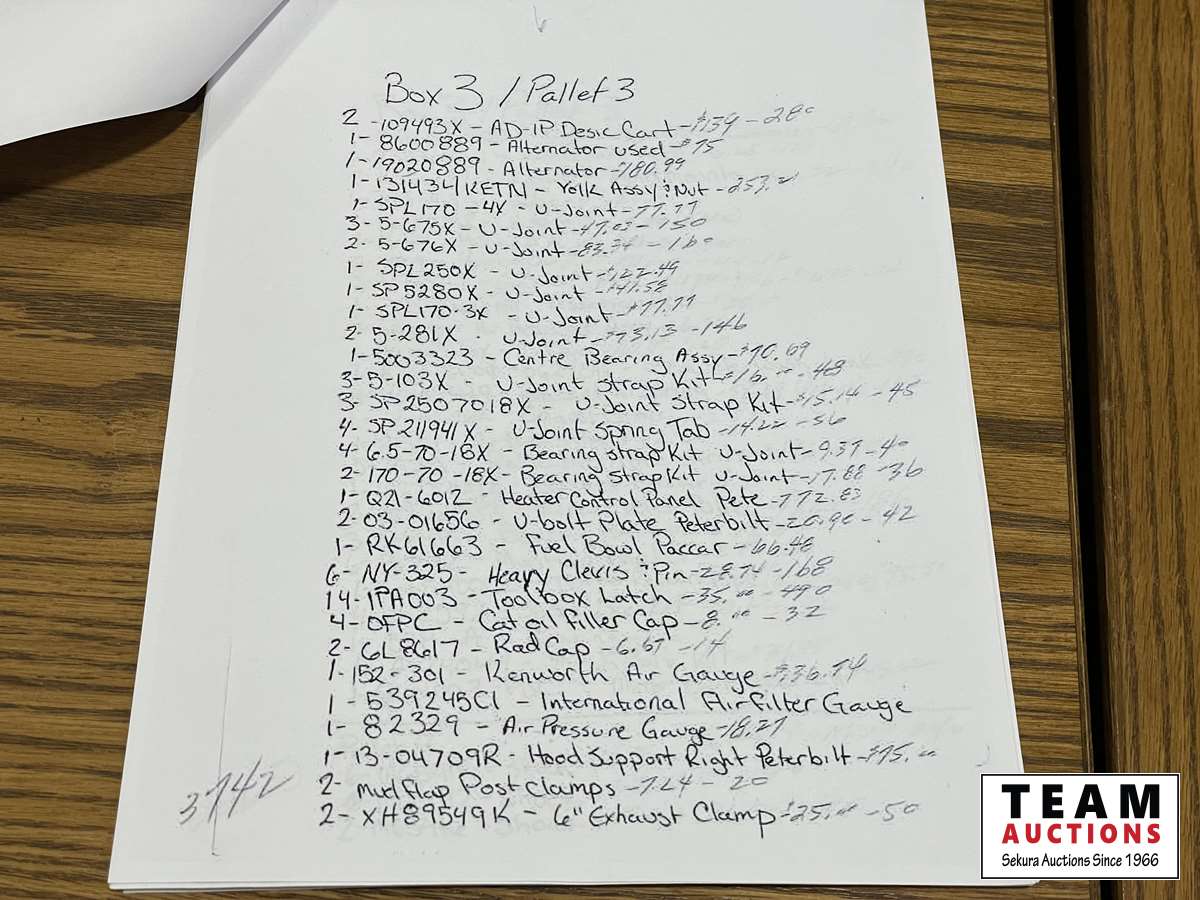 Box 3 / Pallet 3
2 -109493X - AD-IP Desic Cart - $139 - 280
1- 8600889 - Alternator used - $75
1- 19020889 - Alternator - 180.99
1- 131434/KETN - Yolk Assy & Nut - 253.
1- SPL170 - 4X - U-Joint - 77.77
3- 5-675X - U-Joint - 47.03 - 150
2- 5-676X - U-Joint - 83.34 - 160
1- SPL250X - U-Joint - $122.49
1- SP5280X - U-Joint -
1- SPL170-3X - U-Joint - $77.77
2- 5-281X - U-Joint - $73.13 - 146
1-5003323 - Centre Bearing Assy - $70.69
3-5-103X - U-Joint Strap Kit - $16.00 - 48
3- SP2507018X - U-Joint Strap Kit - $15.14 - 45
4- SP211941X - U-Joint Spring Tab - 14.22 - 56
4- 6.5-70-18X - Bearing strap Kit U-Joint - 9.37 - 40
2- 170-70-18X - Bearing strap Kit U-Joint - 17.88 - 36
1- Q21-6012 - Heater Control Panel Pete - 772.83
2- 03-01656 - U-bolt Plate Peterbilt - 20.90 - 42
1- RK61663 - Fuel Bowl Paccar - 66.48
6- NY-325 - Heavy Clevis & Pin - 28.74 - 168
14- IPA003 - Toolbox Latch - 35.00 - 490
4- OFPC - Cat oil filler Cap - 8.00 - 32
2- 6L8617 - Rad Cap - 6.67 - 14
1- 152-301 - Kenworth Air Gauge - $36.74
1 - 539245C1 - International Air filter Gauge
1- 82329 - Air Pressure Gauge - 18.27
1- 13-04709R - Hood Support Right Peterbilt - $75.00
2- mudflap Post Clamps - 7.24 - 20
2- XH89549K - 6" Exhaust Clamp - $25.00 - 50
3742
TEAM
AUCTIONS
Sekura Auctions Since 1966